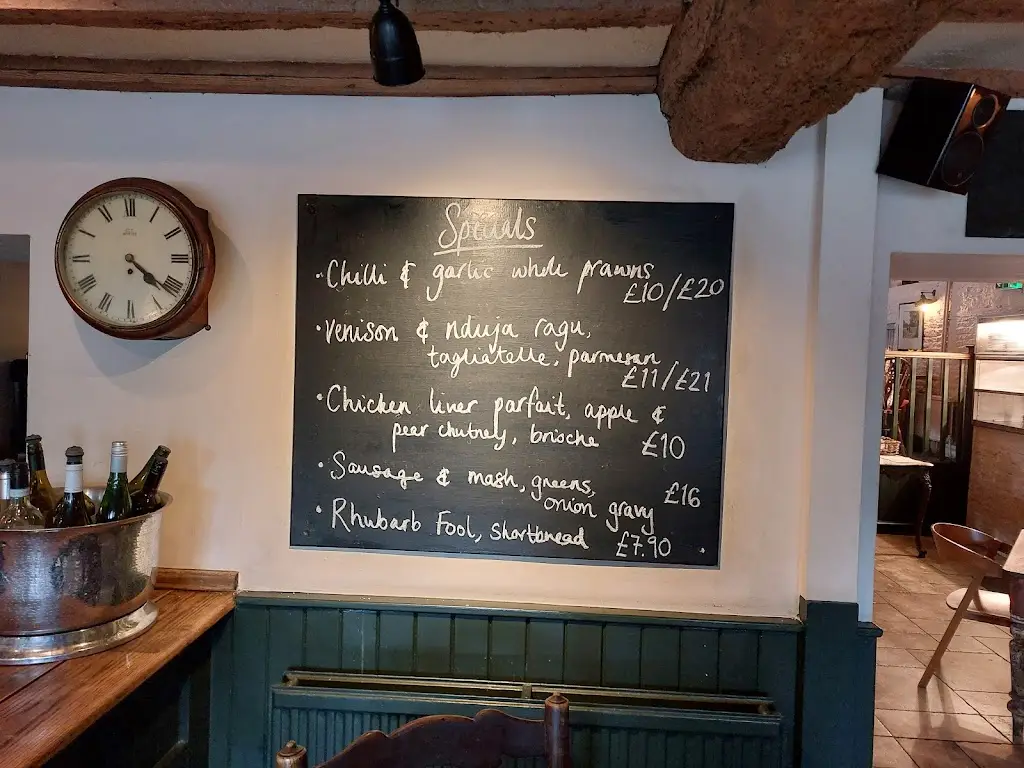 Specials
• Chilli & garlic whole prawns
£10/£20
• Venison & nduja ragu,
tagliatelle, parmesan
£11/£21
• Chicken liver parfait, apple &
pear chutney, brioche £10
• Sausage & mash, greens,
onion gravy £16
• Rhubarb Fool, shortbread £7.90
XII
I
II
III
IIII
V
VI
VII
VIII
IX
X
XI